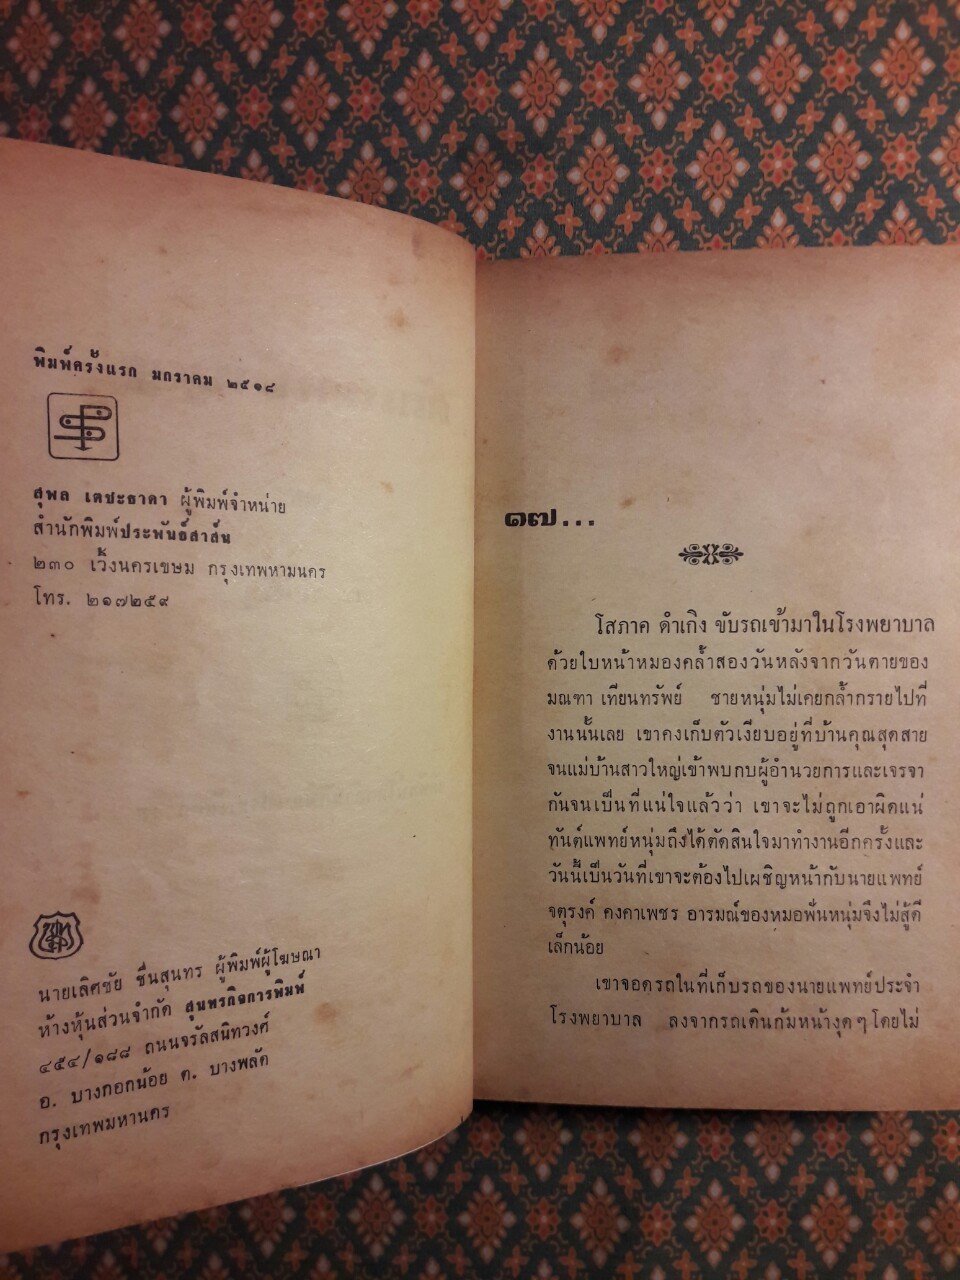 พิมพ์ครั้งแรก มกราคม ๒๕๑๘
สุพล เตชะธาดา ผู้พิมพ์จำหน่าย
สำนักพิมพ์ประพันธ์สาส์น
๒๓๐ เวิ้งนครเขษม กรุงเทพหามนคร
โทร. ๒๑๗๒๕๙
นายเลิศชัย ชื่นสุนทร ผู้พิมพ์ผู้โฆษณา
ห้างหุ้นส่วนจำกัด สุนทรกิจการพิมพ์
๔๕๔/๑๘๘ ถนนจรัลสนิทวงศ์
อ. บางกอกน้อย ต. บางพลัด
กรุงเทพมหานคร
๑๗...
โสภาค ดำเกิง ขับรถเข้ามาในโรงพยาบาล
ด้วยใบหน้าหมองคล้ำสองวันหลังจากวันตายของ
มณฑา เทียนทรัพย์ ชายหนุ่มไม่เคยกล้ำกรายไปที่
งานนั้นเลย เขาคงเก็บตัวเงียบอยู่ที่บ้านคุณสุดสาย
จนแม่บ้านสาวใหญ่เข้าพบกบผู้อำนวยการและเจรจา
กันจนเป็นที่แน่ใจแล้วว่า เขาจะไม่ถูกเอาผิดแน่
ทันต์แพทย์หนุ่มถึงได้ตัดสินใจมาทำงานอีกครั้งและ
วันนี้เป็นวันที่เขาจะต้องไปเผชิญหน้ากับนายแพทย์
จตุรงค์ คงคาเพชร อารมณ์ของหมอฟันหนุ่มจึงไม่สู้ดี
เล็กน้อย
เขาจอดรถในที่เก็บรถของนายแพทย์ประจำ
โรงพยาบาล ลงจากรถเดินก้มหน้างุดๆ โดยไม่